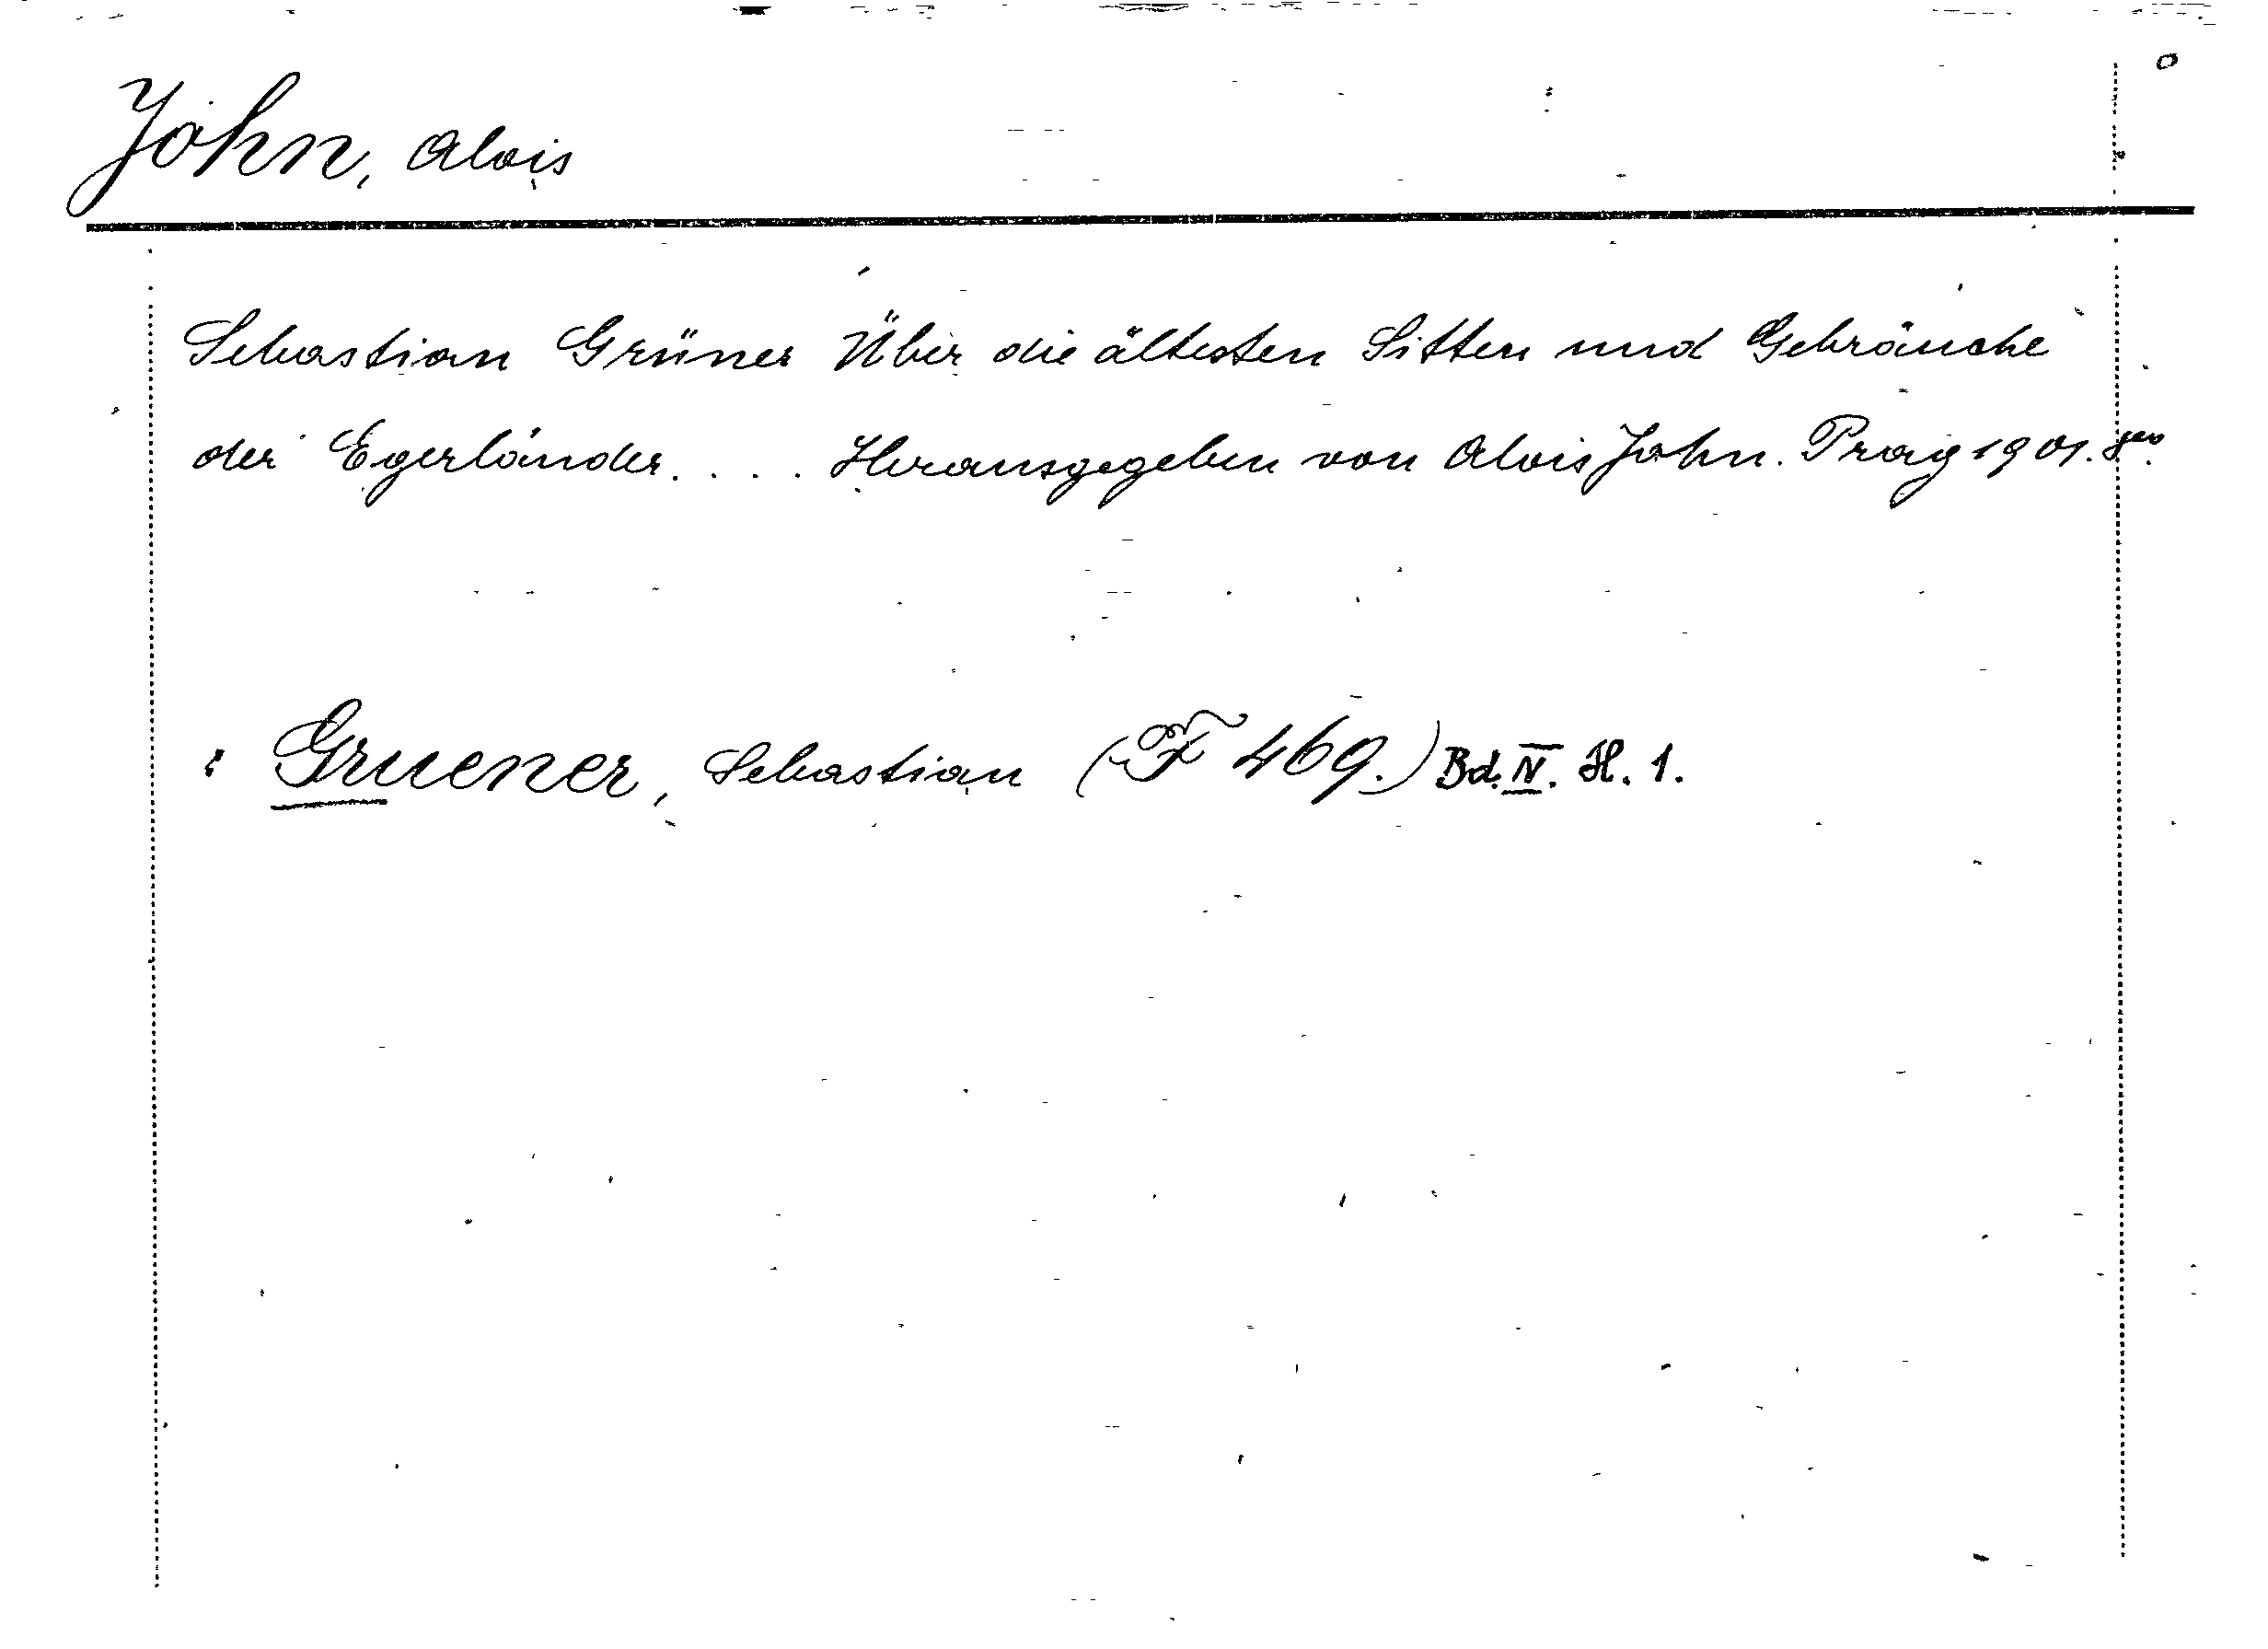 John, Alois
Sebastian Grüner Über die ältesten Sitten und Gebräuche
der Egerländer. . . . Herausgegeben von Alois John. Prag 1901. 8vo.
: Gruener, Sebastian (F 469.) Bd. IV. H. 1.